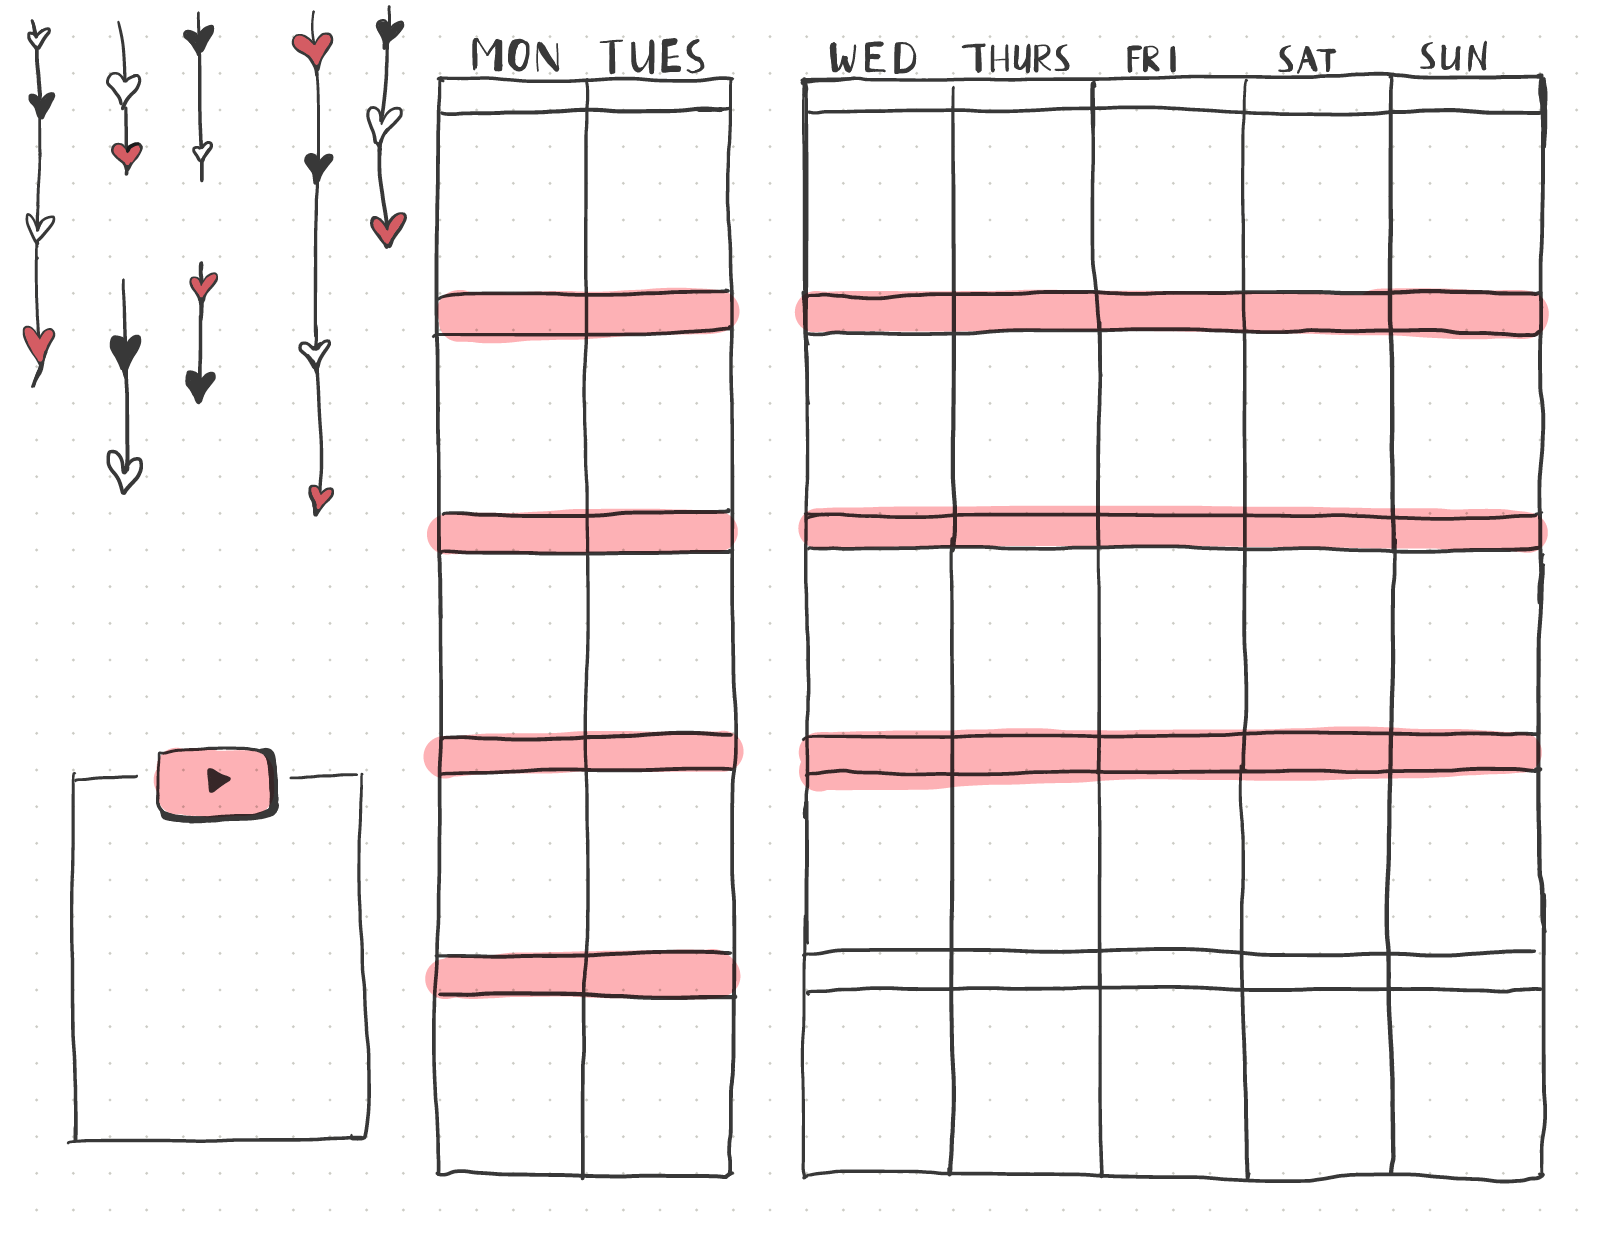 MON TUES WED THURS FRI SAT SUN